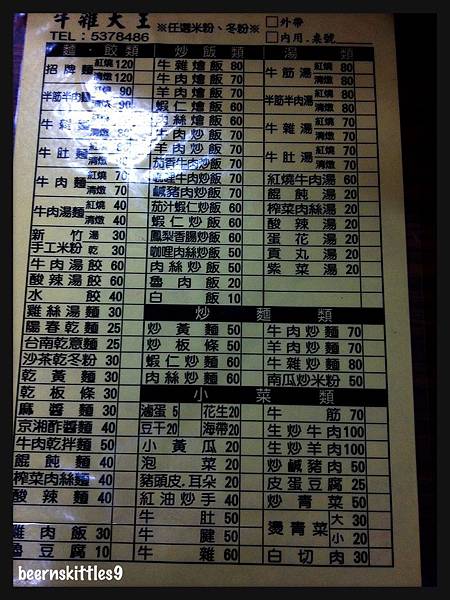 牛雜大王 ※任選米粉、冬粉※ □外帶
TEL：5378486 □內用．桌號
麵餃類
招牌麵 紅燒120 清燉120
半筋半肉麵 90 90
牛肚麵 紅燒70 清燉70
牛肉麵 紅燒70 清燉70
牛肉湯麵 紅燒40 清燉40
新竹手工米粉 湯30 乾30
牛肉湯餃 60
酸辣湯餃 60
水餃 40
雞絲湯麵 30
陽春乾麵 25
台南乾意麵 25
沙茶乾冬粉 30
乾黃麵 30
乾板條 30
麻醬麵 30
京湘酢醬麵 40
牛肉乾拌麵 50
餛飩麵 40
榨菜肉絲麵 40
酸辣麵 40
雞肉飯 30
魯豆腐 10
炒飯類
牛雜燴飯 80
牛肉燴飯 70
羊肉燴飯 70
蝦仁燴飯 60
肉絲燴飯 60
牛肉炒飯 70
羊肉炒飯 70
茄香牛肉炒飯 70
咖哩牛肉炒飯 70
鹹豬肉炒飯 70
茄汁蝦仁炒飯 60
蝦仁炒飯 60
鳳梨香腸炒飯 60
咖哩肉絲炒飯 50
肉絲炒飯 50
魯肉飯 20
白飯 10
湯類
牛筋湯 紅燒80 清燉80
半筋半肉湯 紅燒80 清燉80
牛雜湯 紅燒70 清燉70
牛肚湯 紅燒70 清燉70
紅燒牛肉湯 60
餛飩湯 20
榨菜肉絲湯 20
酸辣湯 20
蛋花湯 20
貢丸湯 20
紫菜湯 20
炒麵類
炒黃麵 50
炒板條 50
蝦仁炒麵 60
肉絲炒麵 60
牛肉炒麵 70
羊肉炒麵 70
牛雜炒麵 80
南瓜炒米粉 50
小菜類
滷蛋 5 花生20
豆干20 海帶20
小黃瓜 20
泡菜 20
豬頭皮．耳朵 20
紅油炒手 40
牛肚 50
牛腱 50
牛雜 60
牛筋 70
生炒牛肉 100
生炒羊肉 100
炒鹹豬肉 50
皮蛋豆腐 25
炒青菜 50
燙青菜 大30 小20
白切肉 30
beernskittles9